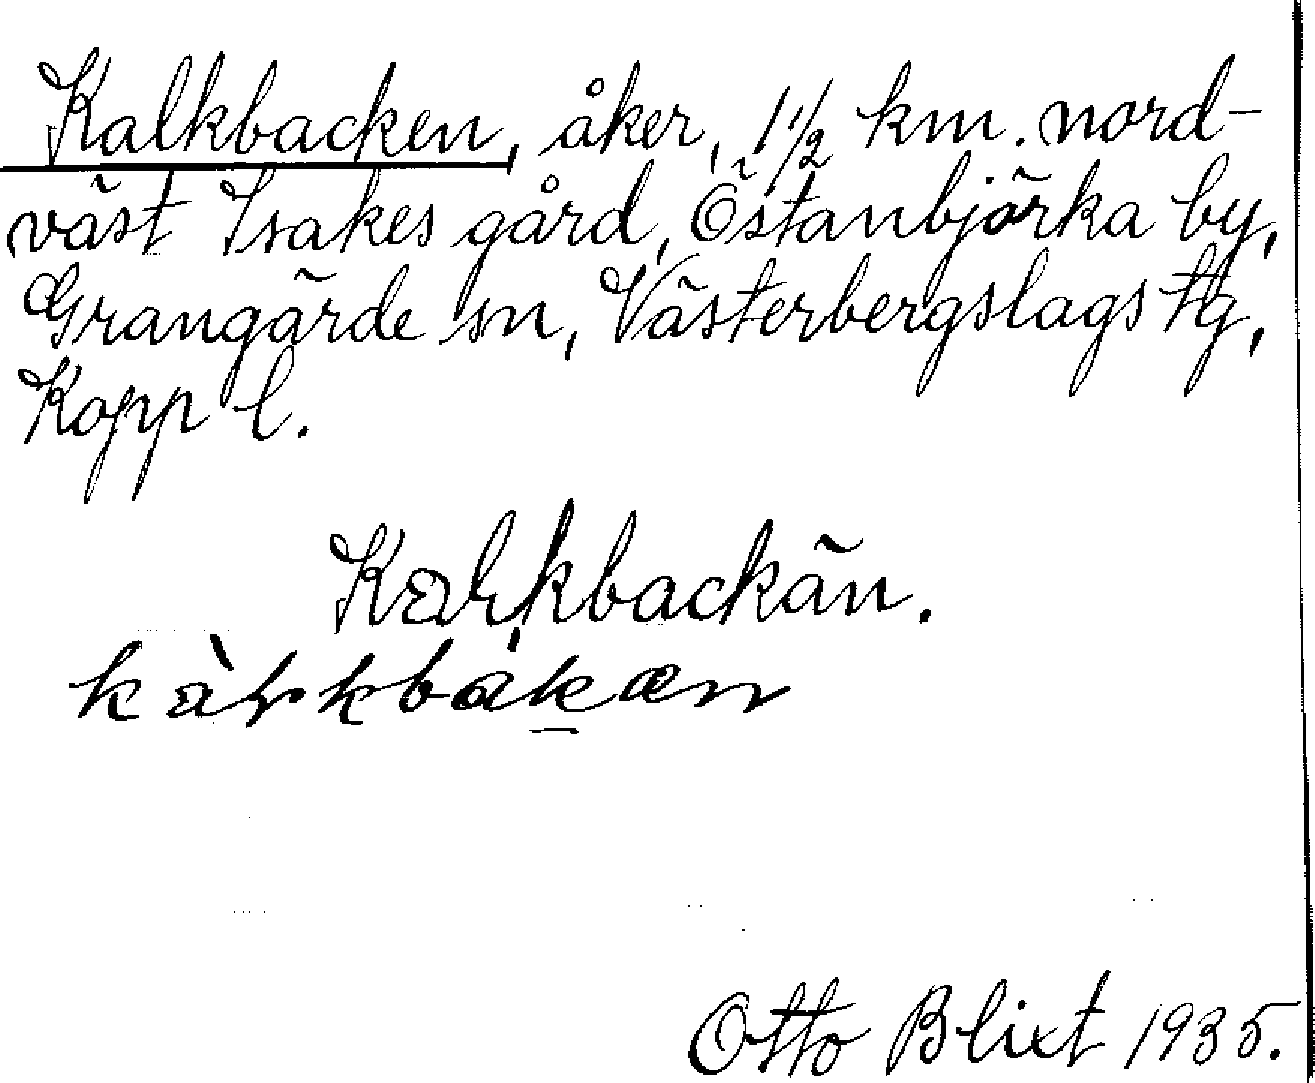 Kalkbacken, åker, 1 1/2 km. nord-
väst Isakes gård, Östanbjörka by,
Grangärde sn, Västerbergslags tg,
Kopp l.
Kalkbackän.
Otto Blixt 1935.